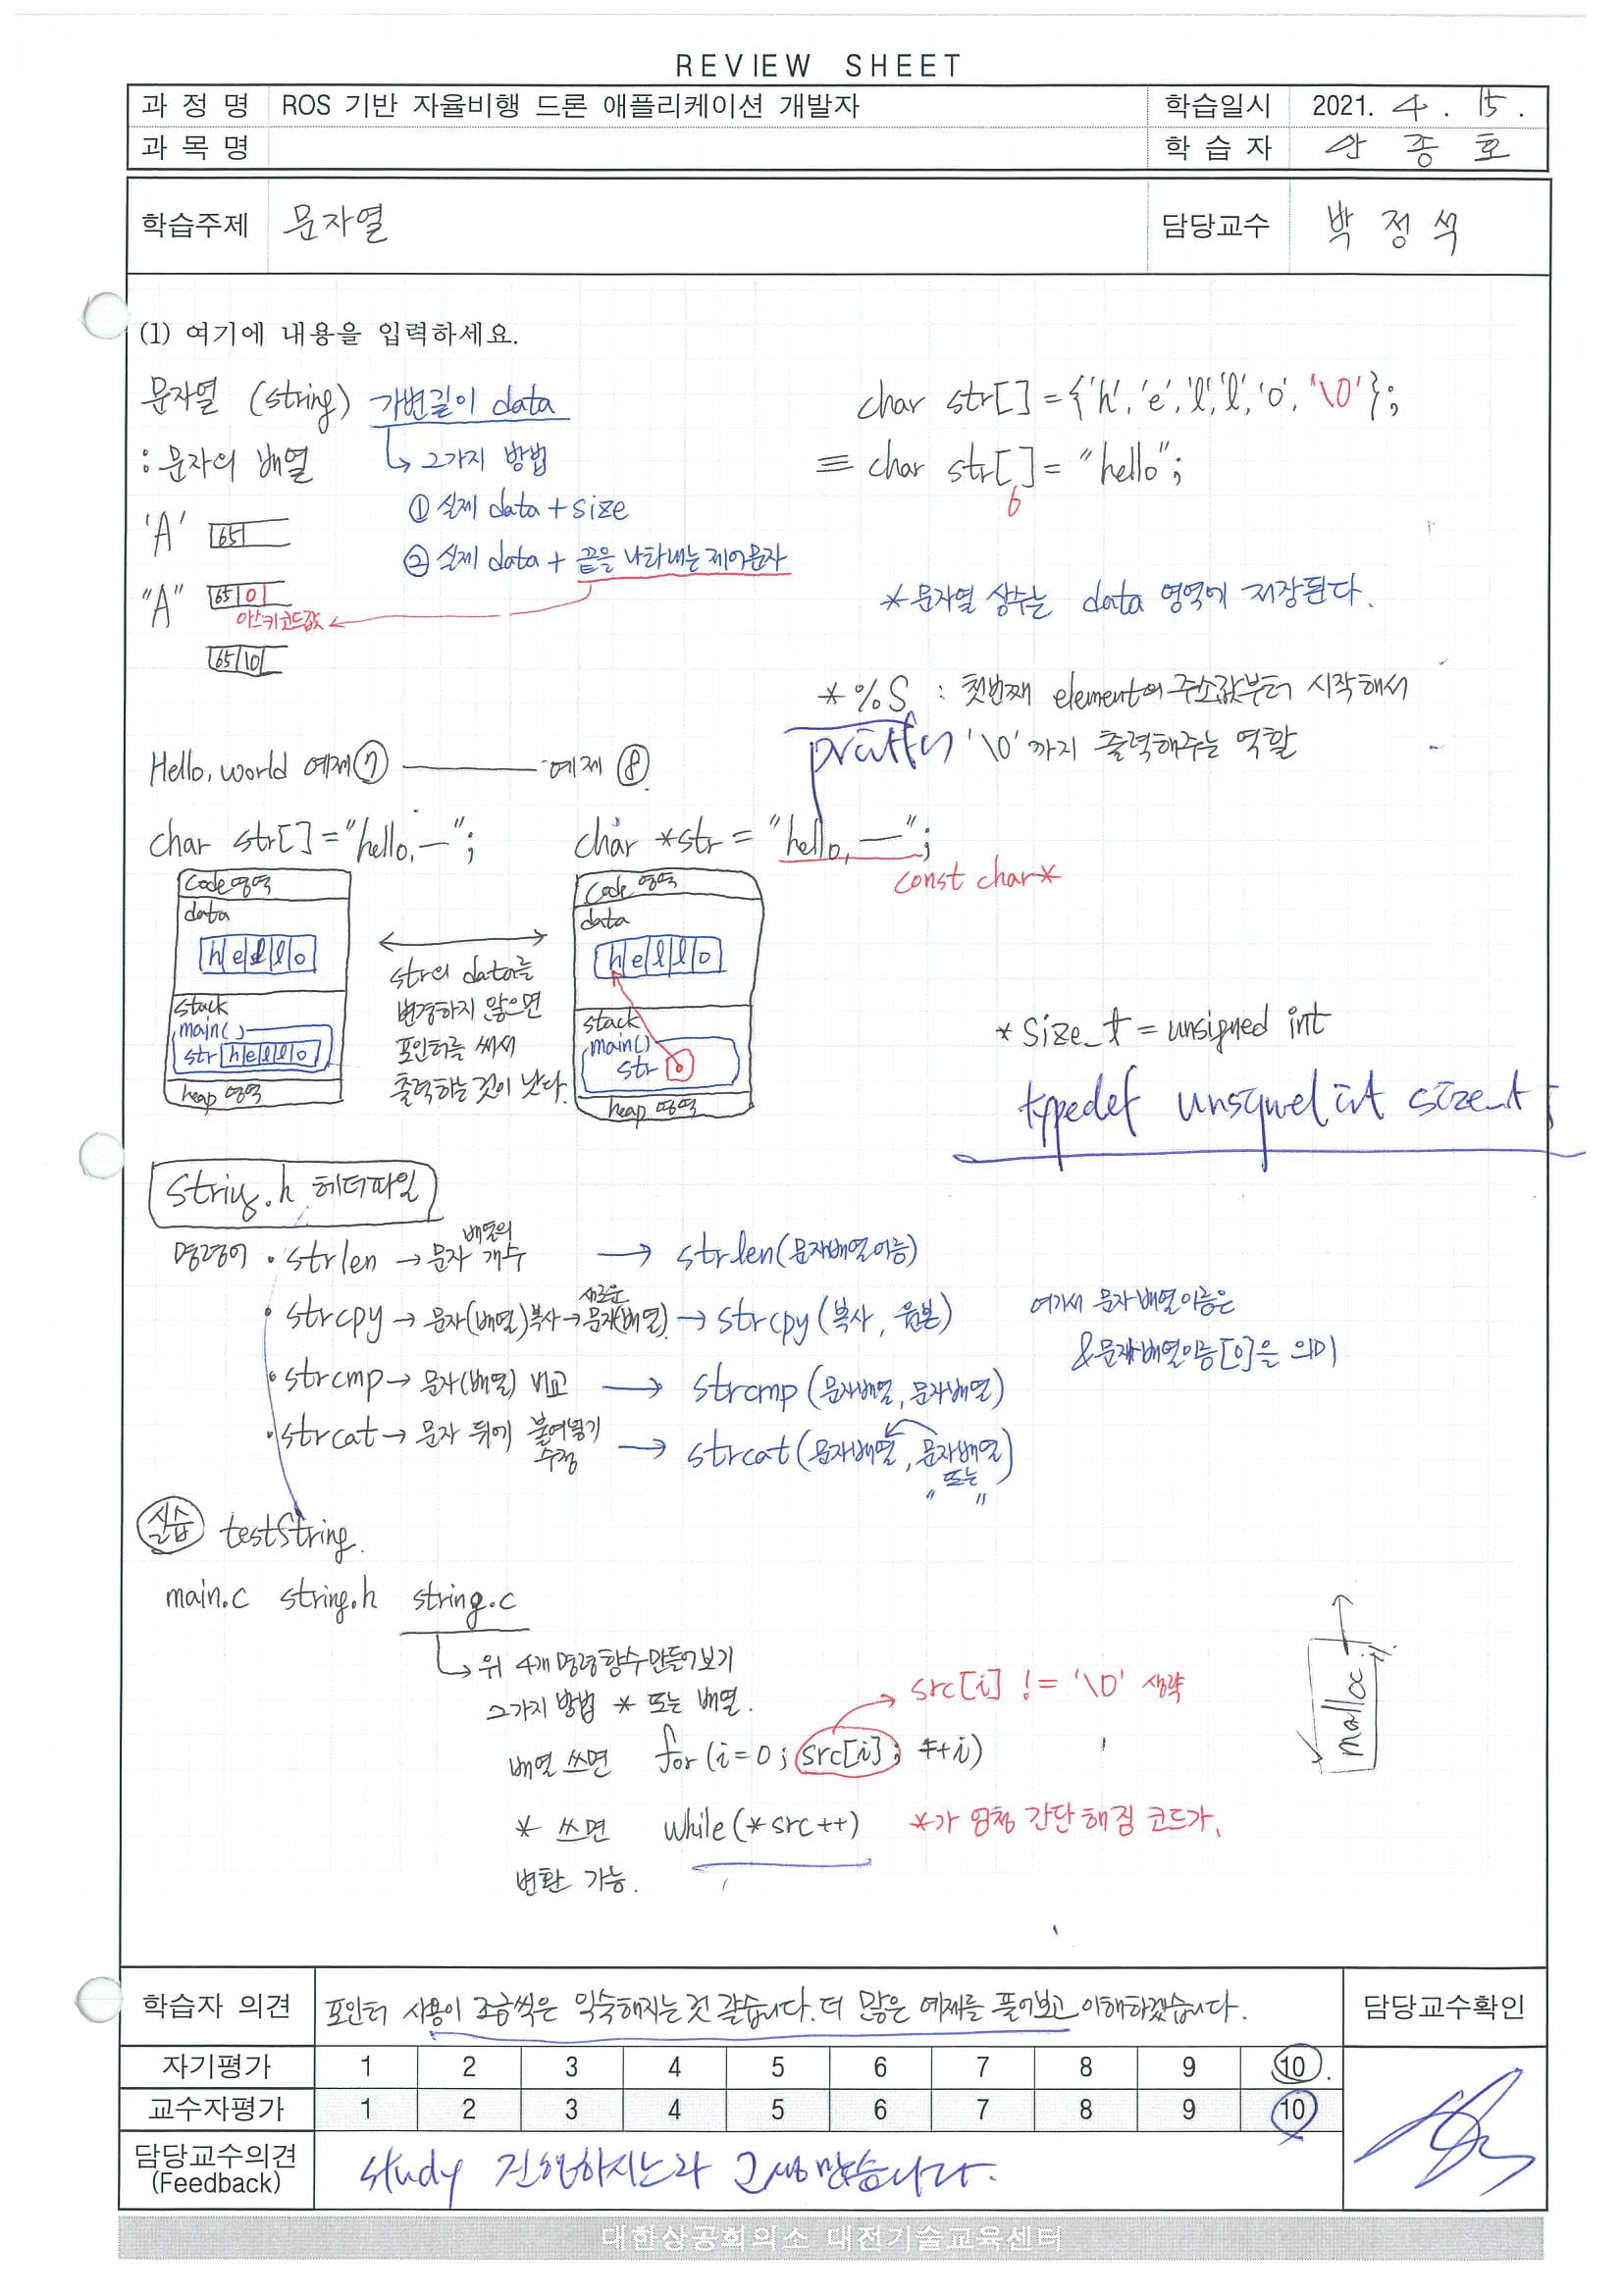 REVIEW SHEET
과 정 명 ROS 기반 자율비행 드론 애플리케이션 개발자 학습일시 2021. 4. 15.
과 목 명 학 습 자 안 종 호
학습주제 문자열 담당교수 박 정 석
(1) 여기에 내용을 입력하세요.
문자열 (string) 가변길이 data
: 문자의 배열
↳ 2가지 방법
① 실제 data + size
② 실제 data + 끝을 나타내는 제어문자
'A' 65
"A" 65 0
아스키코드값
65 10
char str[] = {'h', 'e', 'l', 'l', 'o', '\0'};
≡ char str[] = "hello";
6
* 문자열 상수는 data 영역에 저장된다.
* %S : 첫번째 element의 주소값부터 시작해서
printf '\0'까지 출력해주는 역할
Hello, world 예제 ⑦ 예제 ⑧
char str[] = "hello, —";
Code 영역
data
h e l l o
stack
main()
str h e l l o
heap 영역
str의 data를
변경하지 않으면
포인터를 써서
출력하는 것이 낫다.
char *str = "hello, —";
const char*
Code 영역
data
h e l l o
stack
main()
str
heap 영역
* size_t = unsigned int
typedef unsigned int size_t;
string.h 헤더파일
명령어 · strlen → 문자 배열의 개수 → strlen(문자배열이름)
· strcpy → 문자(배열) 복사 → 새로운 문자(배열) → strcpy(복사, 원본)
· strcmp → 문자(배열) 비교 → strcmp(문자배열, 문자배열)
· strcat → 문자 뒤에 붙여넣기 수정 → strcat(문자배열, 문자배열)
또는
" "
여기서 문자배열이름은
&문자배열이름[0]을 의미
실습 testString.
main.c string.h string.c
↳ 위 4개 명령함수 만들어보기
2가지 방법 * 또는 배열.
배열 쓰면 for (i=0; src[i]; ++i)
src[i] != '\0' 생략
* 쓰면 while(*src++) *가 엄청 간단해짐 코드가.
변환 가능.
malloc
학습자 의견 포인터 사용이 조금씩은 익숙해지는 것 같습니다. 더 많은 예제를 풀어보고 이해하겠습니다. 담당교수확인
자기평가 1 2 3 4 5 6 7 8 9 10
교수자평가 1 2 3 4 5 6 7 8 9 10
담당교수의견 study 진행하시느라 고생많습니다.
(Feedback)
대한상공회의소 대전기술교육센터